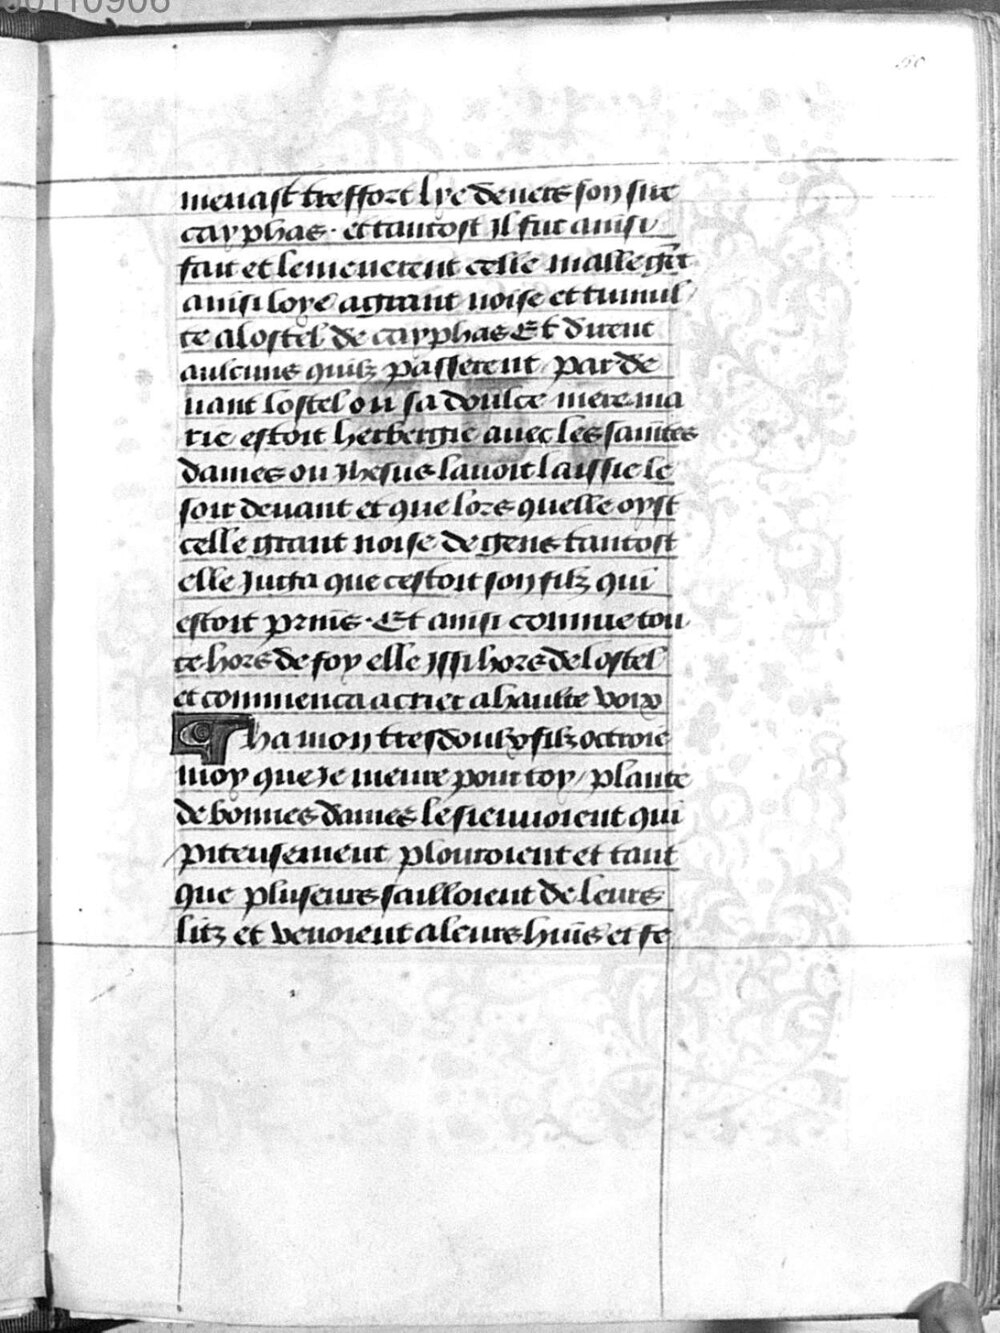 00110906
60
menast tresfort lye deuers son sire
cayphas · et tantost il fut ainsi
fait et lemenerent celle malle gēt
ainsi loye a grant noise et tumul
te a lostel de cayphas Et dirent
aulcuns quilz passerent par de
uant lostel ou sa doulce mere ma
rie estoit herbergie auec les saintes
dames ou Jhesus lauoit laissie le
soir deuant et que lors quelle oyst
celle grant noise de gens tantost
elle Juga que cestoit son filz qui
estoit prins · Et ainsi comme tou
te hors de foy elle Jssi hors de lostel
et commenca a crier a haulte voix
Tha mon tresdoulx filz octroie
moy que Je meure pour toy / plante
de bonnes dames le sieuuoient qui
piteusement plouroient et tant
que pluseurs sailloient de leurs
litz et venoient a leurs huis et fe